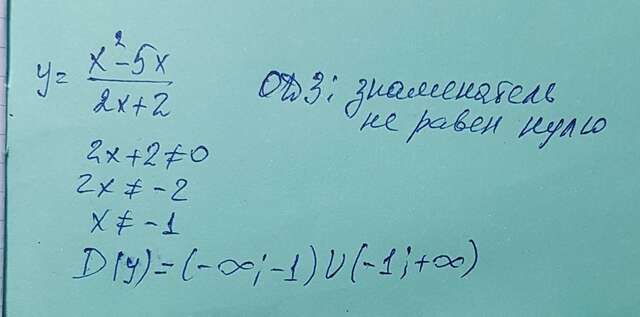 y = x² - 5x / 2x + 2
ОДЗ: знаменатель
не равен нулю
2x + 2 ≠ 0
2x ≠ -2
x ≠ -1
D(y) = (-∞; -1) U (-1; +∞)